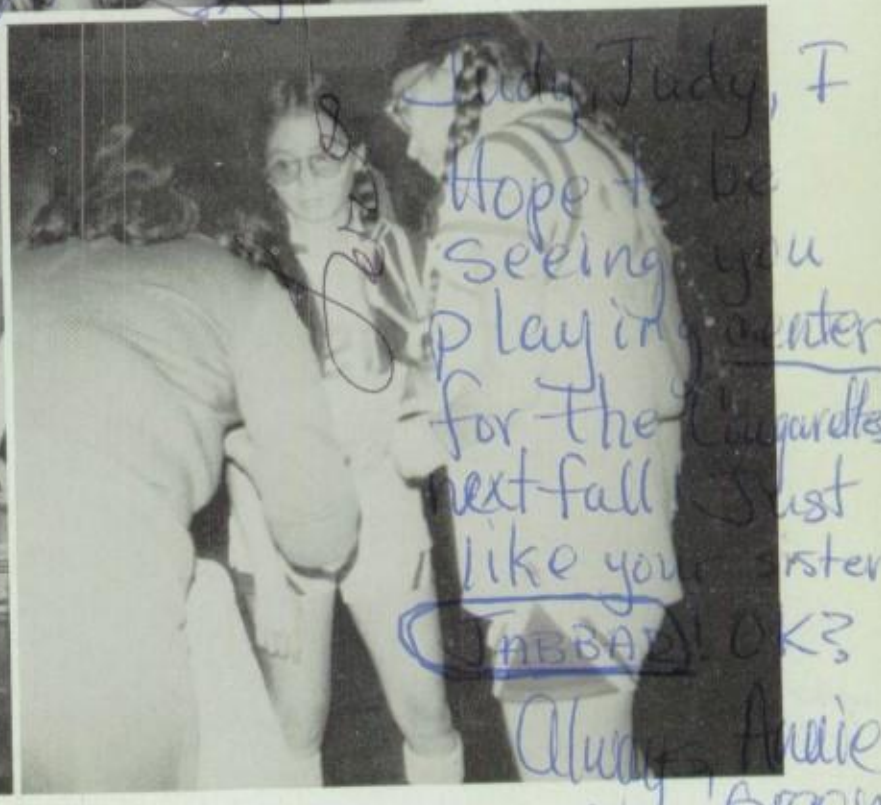 Judy, Judy, I
Hope to be
seeing you
playing center
for the Cougarettes
next fall! Just
like your sister
JABBAR! OK?
Always, Annie